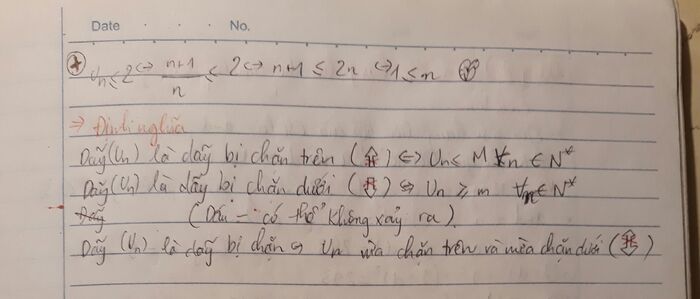 Date No.
* Un ≤ 2 ⇔ n+1/n ≤ 2 ⇔ n+1 ≤ 2n ⇔ 1 ≤ n
→ Định nghĩa
Dãy (Un) là dãy bị chặn trên ( ) ⇔ Un ≤ M ∀n ∈ N*
Dãy (Un) là dãy bị chặn dưới ( ) ⇔ Un ≥ m ∀n ∈ N*
(Dấu = có thể không xảy ra).
Dãy (Un) là dãy bị chặn ⇔ Un vừa chặn trên và vừa chặn dưới ( )